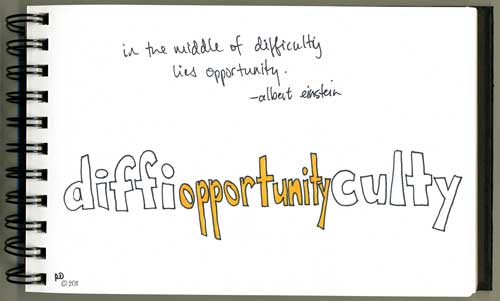 in the middle of difficulty
lies opportunity.
-albert einstein
diffiopportunityculty
©2011